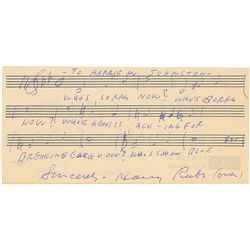 - TO HARRIET W. JOHNSTON -
WHO'S SORRY NOW? WHO'S SORRY
NOW? WHO'S HEART IS ACH-ING FOR
BREAKING EACH VOW? WHO'S SAD AND BLUE
Sincerely - Harry Ruby (over)